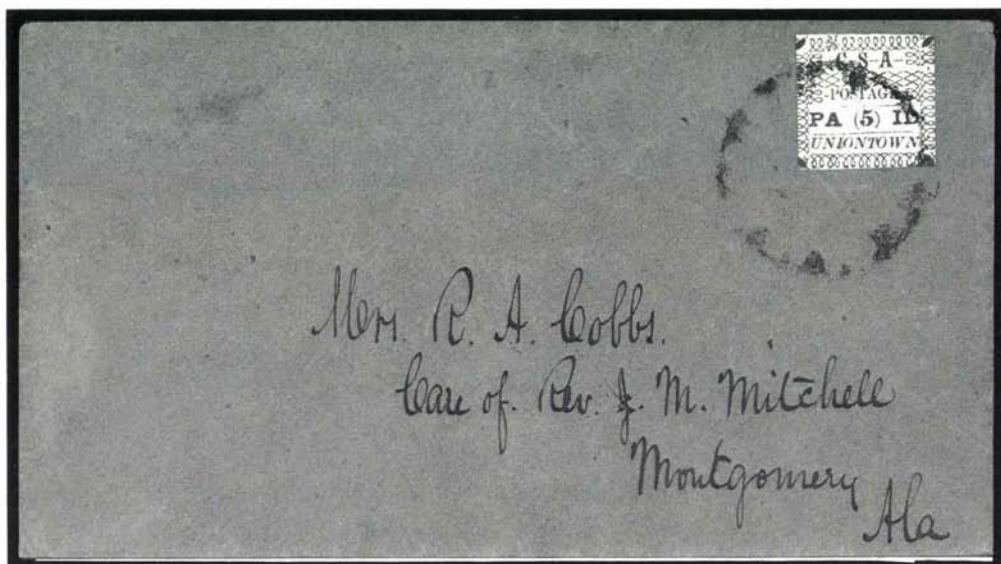 C-S-A-
-POSTAGE-
PA (5) ID
UNIONTOWN
Mrs. R. A. Cobbs.
Care of. Rev. J. M. Mitchell
Montgomery
Ala